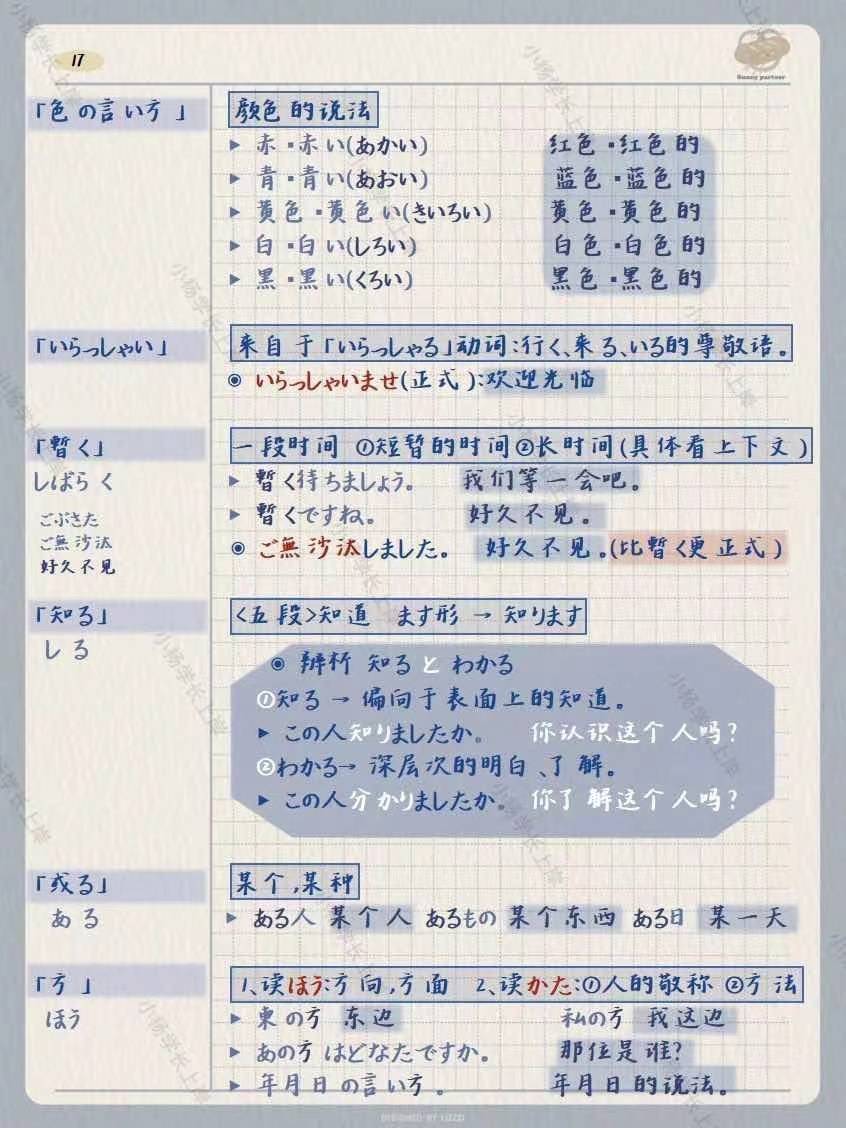 17
Sunny partner
「色の言い方」 颜色的说法
▶ 赤・赤い(あかい) 红色・红色的
▶ 青・青い(あおい) 蓝色・蓝色的
▶ 黄色・黄色い(きいろい) 黄色・黄色的
▶ 白・白い(しろい) 白色・白色的
▶ 黒・黒い(くろい) 黑色・黑色的
「いらっしゃい」 来自于「いらっしゃる」动词:行く、来る、いる的尊敬语。
◉ いらっしゃいませ(正式):欢迎光临
「暫く」 一段时间 ①短暂的时间②长时间(具体看上下文)
しばらく ▶ 暫く待ちましょう。 我们等一会吧。
▶ 暫くですね。 好久不见。
ごぶさた
ご無沙汰 ◉ ご無沙汰しました。 好久不见。(比暫く更正式)
好久不见
「知る」 <五段>知道 ます形 → 知ります
しる
◉ 辨析 知ると わかる
①知る → 偏向于表面上的知道。
▶ この人知りましたか。 你认识这个人吗?
②わかる→ 深层次的明白、了解。
▶ この人分かりましたか。 你了解这个人吗?
「或る」 某个,某种
ある ▶ ある人 某个人 あるもの 某个东西 ある日 某一天
「方」 1、读ほう:方向,方面 2、读かた:①人的敬称 ②方法
ほう ▶ 東の方 东边 私の方 我这边
▶ あの方はどなたですか。 那位是谁?
▶ 年月日の言い方。 年月日的说法。
DESIGNED BY LIZZI
小杨学长上岸